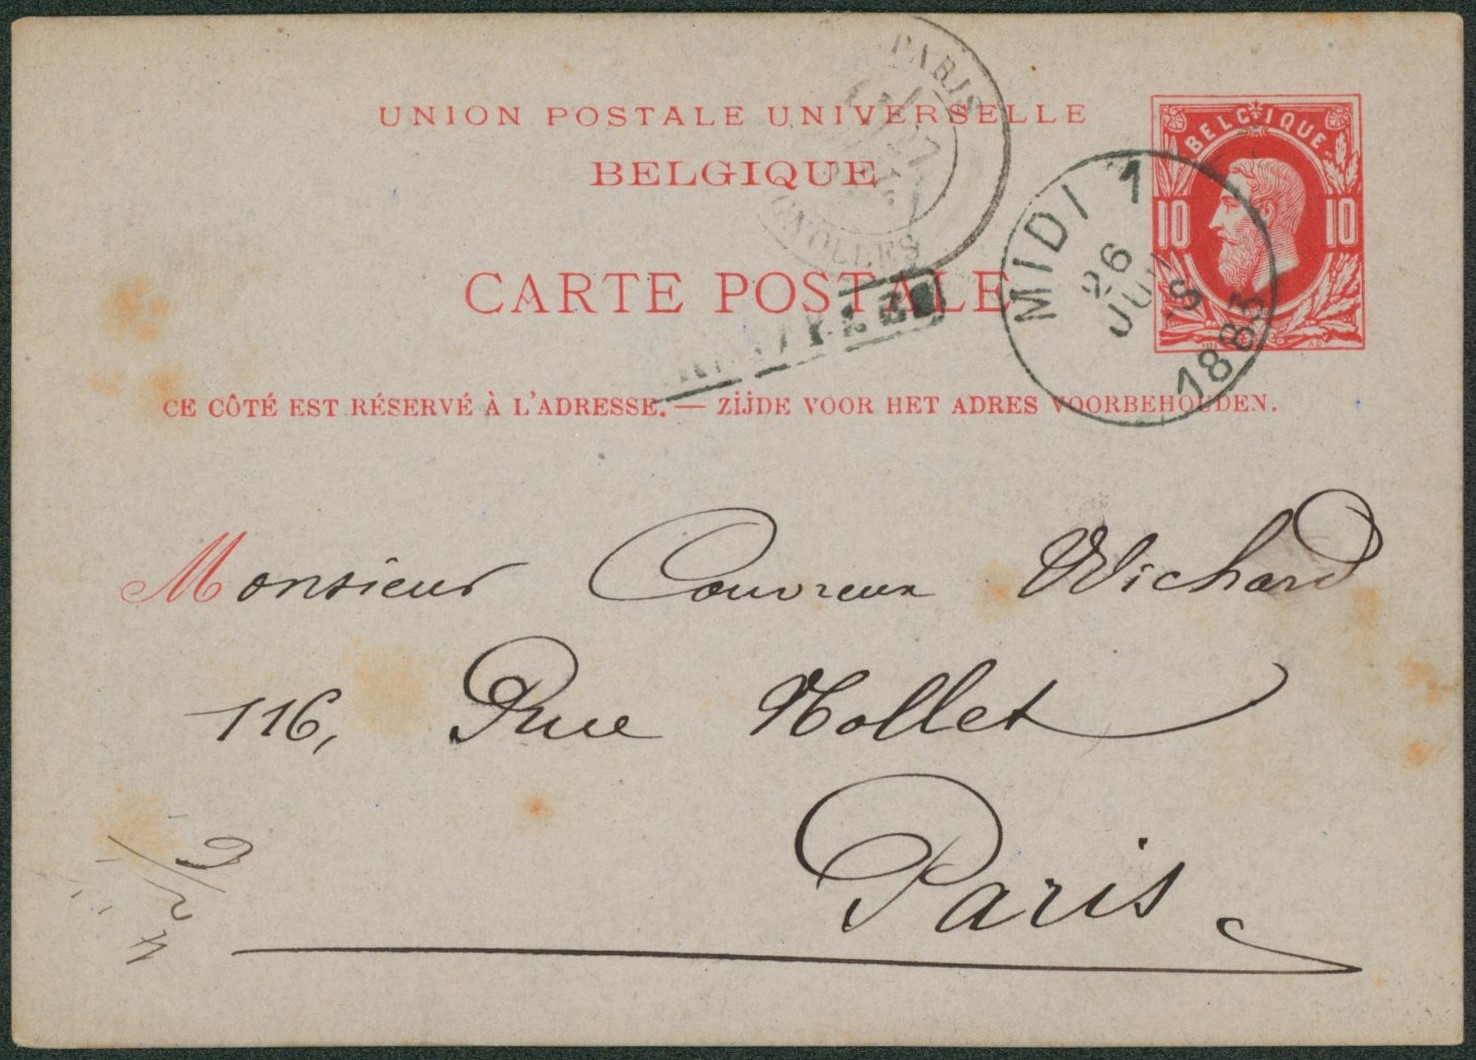 UNION POSTALE UNIVERSELLE
BELGIQUE
CARTE POSTALE
CE CÔTÉ EST RÉSERVÉ À L'ADRESSE. — ZIJDE VOOR HET ADRES VOORBEHOUDEN.
BELGIQUE
10 10
MIDI 1
26
JUIN
1883
PARIS
27
Monsieur Couvreux Wichard
116, Rue Nollet
Paris